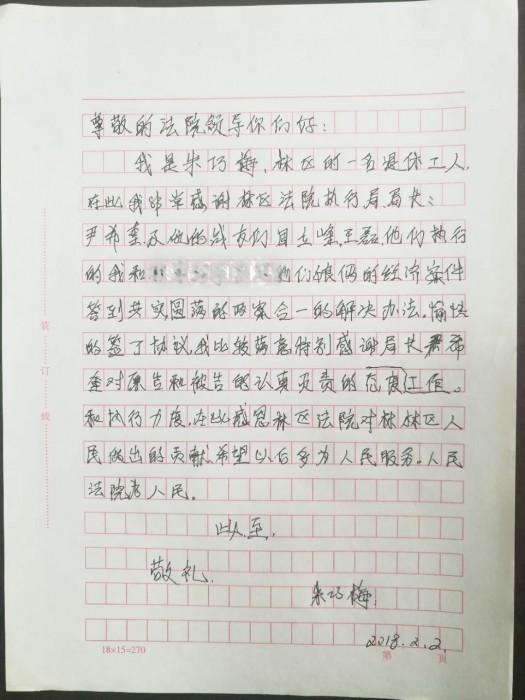 尊敬的法院领导你们好：
我是朱巧梅，林区的一名退休工人，
在此我非常感谢林区法院执行局，局长：
尹希奎及他的战友们 王磊，他们执行
的我和 他们娘俩的经济案件
签到共实圆满的两案合一的解决办法。愉快
的签了协议。我比较满意特别感谢局长 尹希
奎对原告和被告的认真负责的态度工作。
和执行力度，在此感恩林区法院对林区人
民做出的贡献，希望以后多为人民服务。人民
法院为人民。
此致，
敬礼
朱巧梅，
2018.2.2.
装订线
18×15=270
第 页